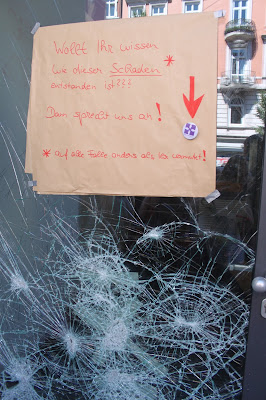 Wollt Ihr wissen
wie dieser Schaden *
entstanden ist???
Dann sprecht uns an!
* auf alle Fälle anders als Ihr vermutet!